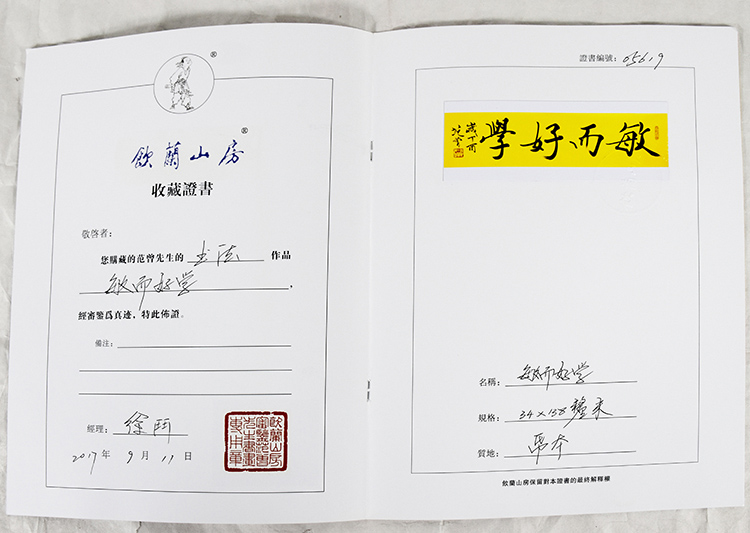 ®
飲蘭山房®
收藏證書
敬啓者：
您購藏的范曾先生的 书法 作品
敏而好学，
經審鑒爲真迹，特此佈證。
備注：
經理：徐
2017年9月11日
證書編號：05619
敏而好學
歲丁酉
范曾
名稱：敏而好学
規格：34×138釐米
質地：纸本
飲蘭山房保留對本證書的最終解釋權